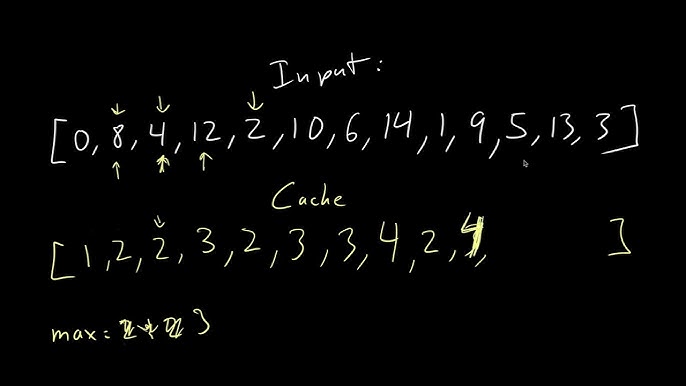 Input:
[0, 8, 4, 12, 2, 10, 6, 14, 1, 9, 5, 13, 3]
Cache
[1, 2, 2, 3, 2, 3, 3, 4, 2, 4, ]
max = 3